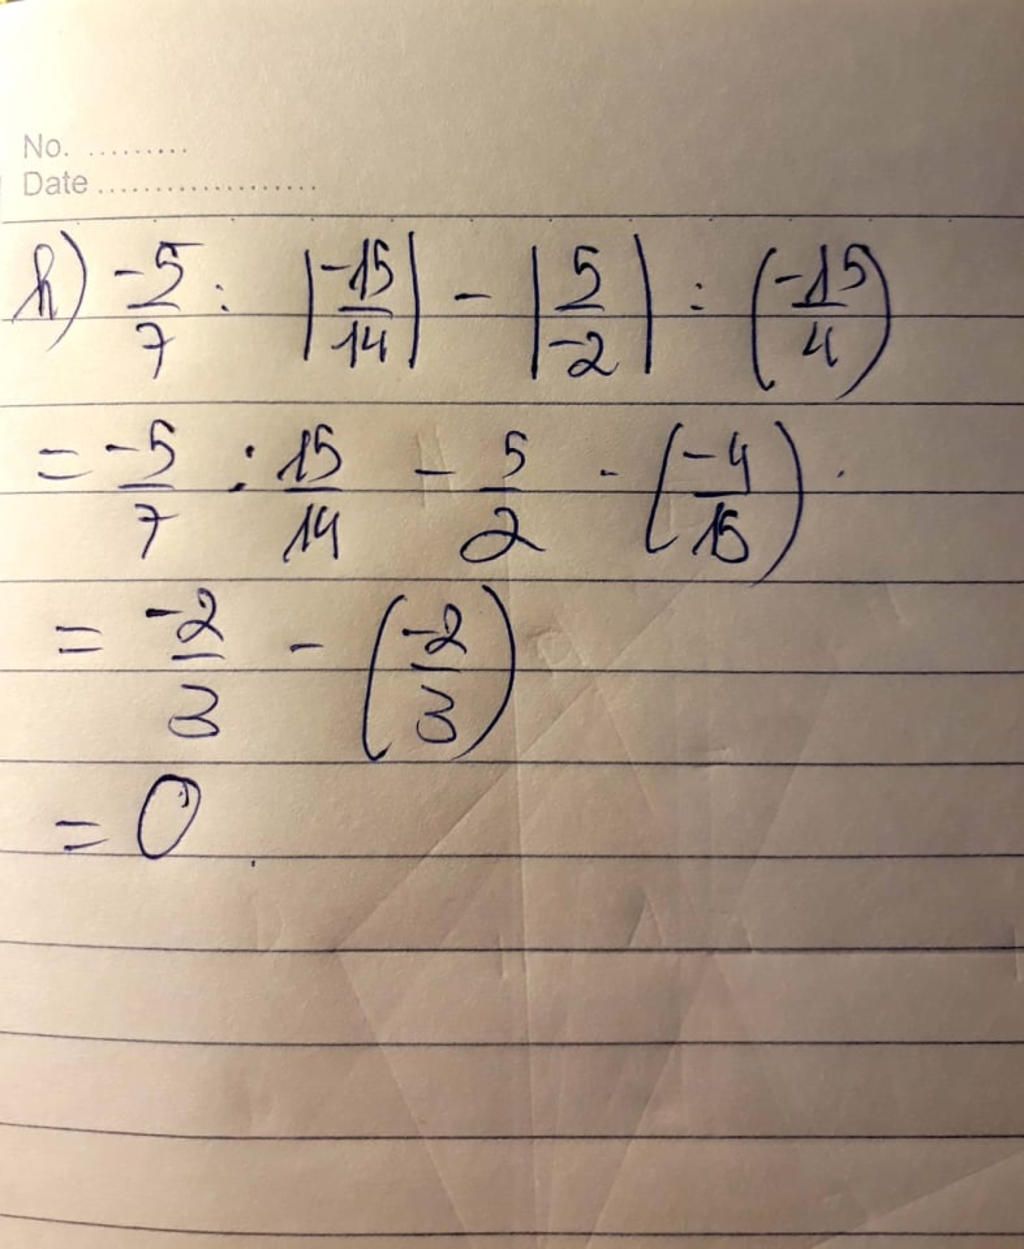 No. .........
Date ...................
h) -5/7 : |-15/14| - |5/-2| : (-15/4)
= -5/7 : 15/14 - 5/2 · (-4/15)
= -2/3 - (-2/3)
= 0